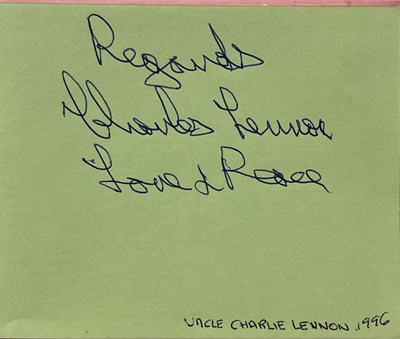 Regards
Charles Lennon
Love & Peace
UNCLE CHARLIE LENNON. 1996